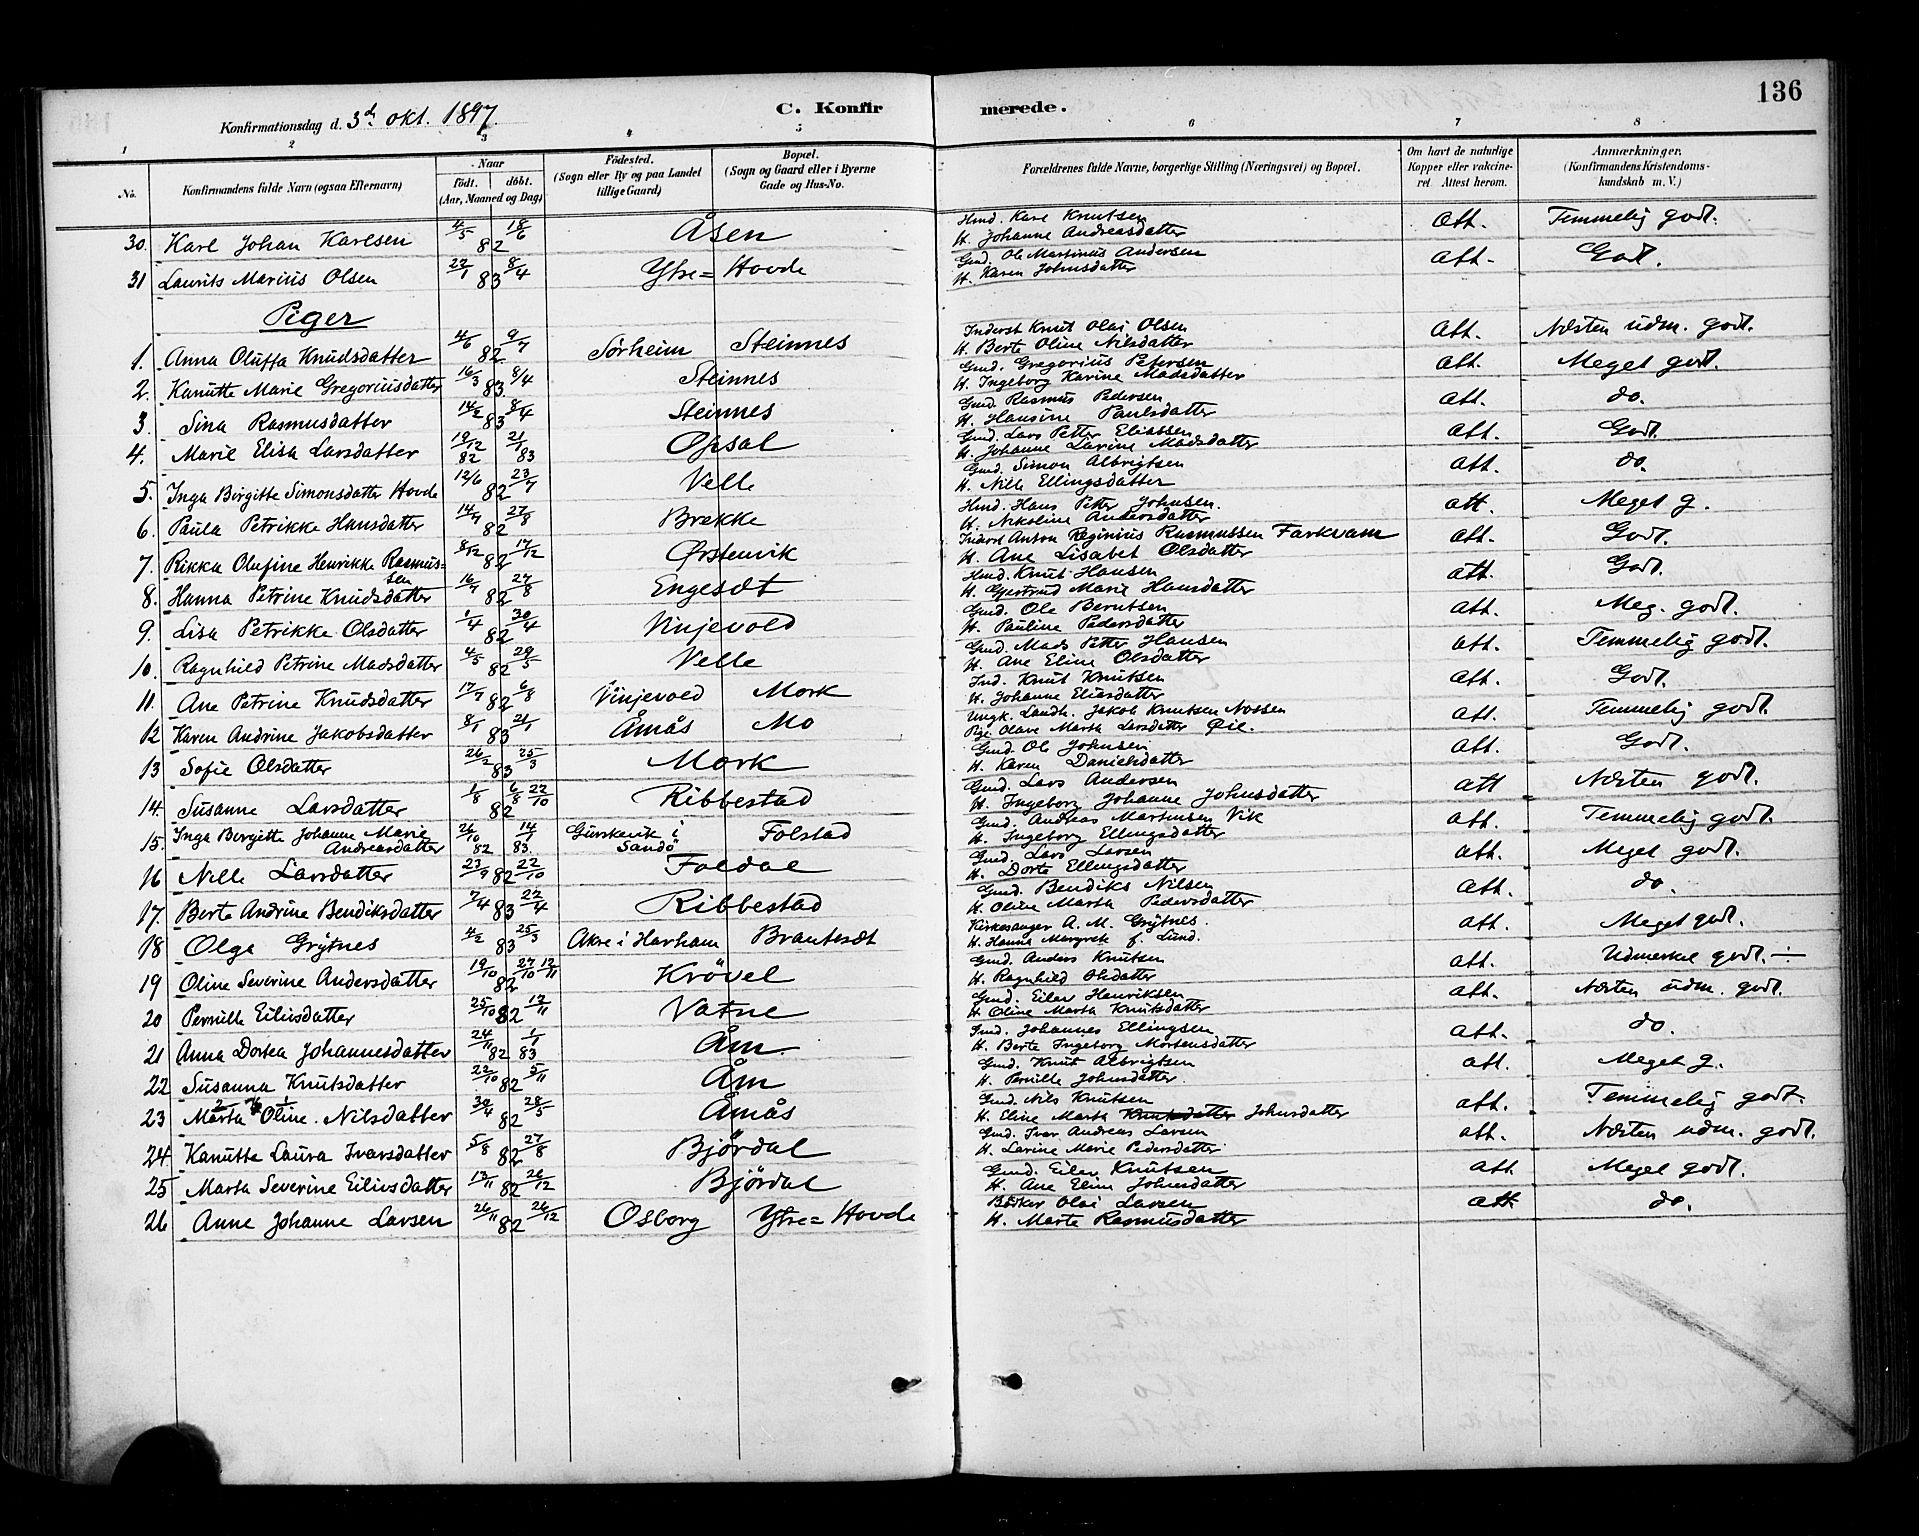 136
Konfirmationsdag d. 3d okt. 1897.
C. Konfirmerede.
1 2 3 4 5 6 7 8
No. Konfirmandens fulde Navn (ogsaa Efternavn) Naar født. døbt. (Aar, Maaned og Dag) Fødested. (Sogn eller By og paa Landet tillige Gaard) Bopæl. (Sogn og Gaard eller i Byerne Gade og Hus-No. Forældrenes fulde Navne, borgerlige Stilling (Næringsvei) og Bopæl. Om havt de naturlige Kopper eller vakcineret. Attest herom. Anmærkninger. (Konfirmandens Kristendomskundskab m. V.)
30. Karl Johan Karlsen 4/5 82 18/6 Åsen Hmd. Karl Knutsen H. Johanne Andreasdatter Att. Temmelig godt.
31 Laurits Marius Olsen 22/1 83 8/4 Ytre= Hovde Gmd. Ole Martinus Andersen H. Karen Johnsdatter att. Godt.
Piger
1. Anna Oluffa Knudsdatter 4/6 82 9/7 Sørheim Steinnes Inderst Knut Olai Olsen H. Berte Oline Nilsdatter Att. Næsten udm. godt.
2. Kanutte Marie Gregoriusdatter 16/3 83 8/4 Steinnes Gmd. Gregorius Petersen H. Ingeborg Karine Madsdatter att. Meget godt.
3. Sina Rasmusdatter 14/2 83 8/4 Steinnes Gmd. Rasmus Pedersen H. Hansine Paulsdatter att. do.
4. Marie Elisa Larsdatter 19/12 82 21/1 83 Opsal Gmd. Lars Petter Eliassen H. Johanne Larine Madsdatter Att. Godt.
5. Inga Birgitte Simonsdatter Hovde 12/6 82 23/7 Velle Gmd. Simon Albrigtsen H. Nille Ellingsdatter att. do.
6. Paula Petrikke Hansdatter 82 27/8 Brekke Hmd. Hans Petter Johnsen. H. Nikoline Andersdatter att. Meget g.
7. Rikka Olufine Henrikke Rasmussen 8/12 82 17/12 Ørstenvik Inderst Anton Reginius Rasmussen Farkvam H. Ane Lisabet Olsdatter att. Godt.
8. Hanna Petrine Knudsdatter 82 27/8 Engesæt Hmd. Knut Hansen H. Gjertrud Marie Hansdatter att. Godt.
9. Lisa Petrikke Olsdatter 1/4 82 30/4 Vinjevold Gmd. Ole Berntsen H. Pauline Pedersdatter att. Meg. godt.
10. Ragnhild Petrine Madsdatter 4/5 82 29/5 Velle Gmd. Mads Petter Hansen H. Ane Eline Olsdatter att. Temmelig godt.
11. Ane Petrine Knudsdatter 17/7 82 6/8 Vinjevold Mork Ind. Knut Knutsen H. Johanne Eliasdatter att. Godt.
12 Karen Andrine Jakobsdatter 8/1 83 21/1 Åmås Mo Ungk. Landh. Jakob Knutsen Nossen Pige Olave Marta Larsdatter Øie. att. Temmelig godt.
13 Sofie Olsdatter 26/2 83 25/3 Mork Gmd. Ole Johnsen H. Karen Danielsdatter att. Godt.
14. Susanne Larsdatter 1/8 82 6/8 22/10 Ribbestad Gmd. Lars Andersen H. Ingeborg Johanne Johnsdatter att Næsten godt.
15. Inga Bergitte Johanne Marie Andreasdatter 26/10 82 14/1 83. Gurskevik i Sandø Folstad Gmd. Andreas Martinsen Vik H. Ingeborg Ellingsdatter att. Temmelig godt.
16 Nille Larsdatter 23/9 82 22/10 Foldal Gmd. Lars Larsen H. Dorte Ellingsdatter att. Meget godt.
17. Berte Andrine Bendiksdatter 7/4 83 22/4 Ribbestad Gmd. Bendiks Nilsen H. Oline Marta Pedersdatter att. do.
18 Olga Grytnes 4/2 83 25/3 Akre i Harham Brautesæt Kirkesanger A. M. Grytnes. H. Hanna Margrete f. Lund. att. Meget godt.
19 Oline Severine Andersdatter 19/10 82 27/10 12/11 Krøvel Gmd. Anders Knutsen H. Ragnhild Olsdatter att. Udmerket godt. ÷
20 Pernille Eiliusdatter 25/10 82 12/11 Vatne Gmd. Eiler Henriksen H. Oline Marta Knutsdatter att. Næsten udm. godt.
21 Anna Dortea Johannesdatter 24/11 82 1/1 83 Åm Ind. Johannes Ellingsen H. Berte Ingeborg Mortensdatter att. do.
22 Susanna Knutsdatter 22/10 82 5/11 Åm Gmd. Knut Albrigtsen H. Pernille Johnsdatter. att. Meget g.
23 Marta Oline. Nilsdatter 30/4 82 28/5 Åmås Gmd. Nils Knutsen H. Eline Marta Knutsdatter Johnsdatter att. Temmelig godt.
24 Kanutte Laura Ivarsdatter 5/8 82 27/8 Bjørdal Gmd. Ivar Andreas Larsen H. Larine Marie Pedersdatter att. Næsten udm. godt.
25 Marta Severine Eiliusdatter 13/11 82 26/12 Bjørdal Gmd. Eiler Knutsen H. Ane Eline Johnsdatter att Meget godt.
26 Anne Johanne Larsen 26/11 82 26/12 Osborg Ytre= Hovde Olai Larsen H. Marte Rasmusdatter att do.